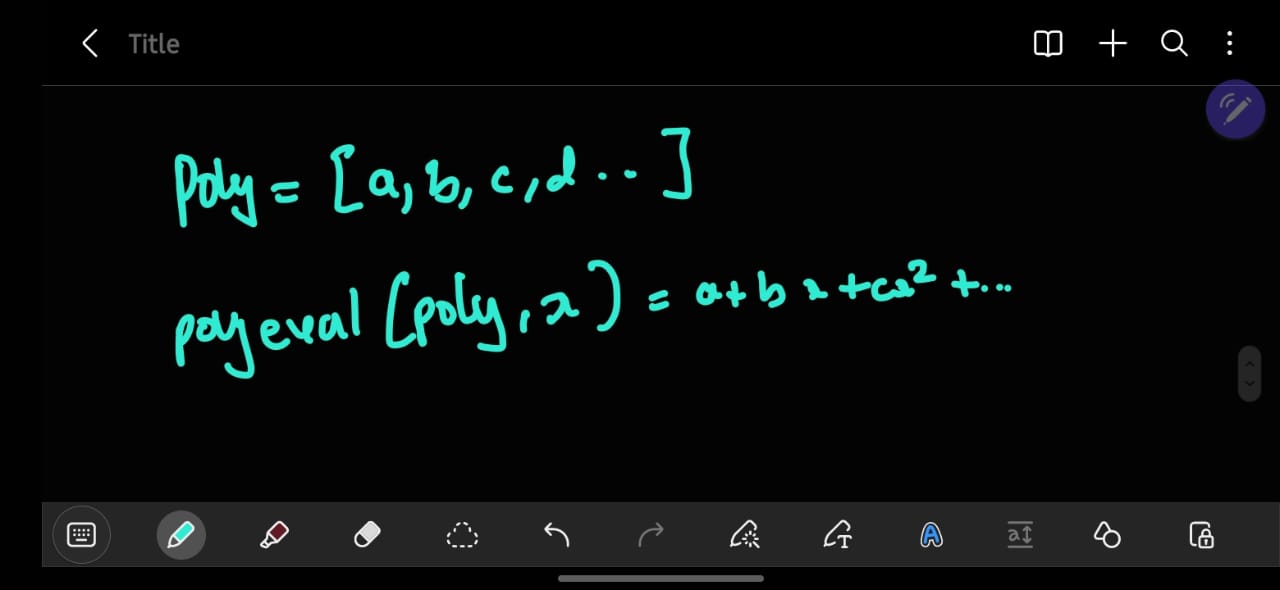 Title
Poly = [a, b, c, d .. ]
polyeval (poly, x) = a+bx+cx²+...